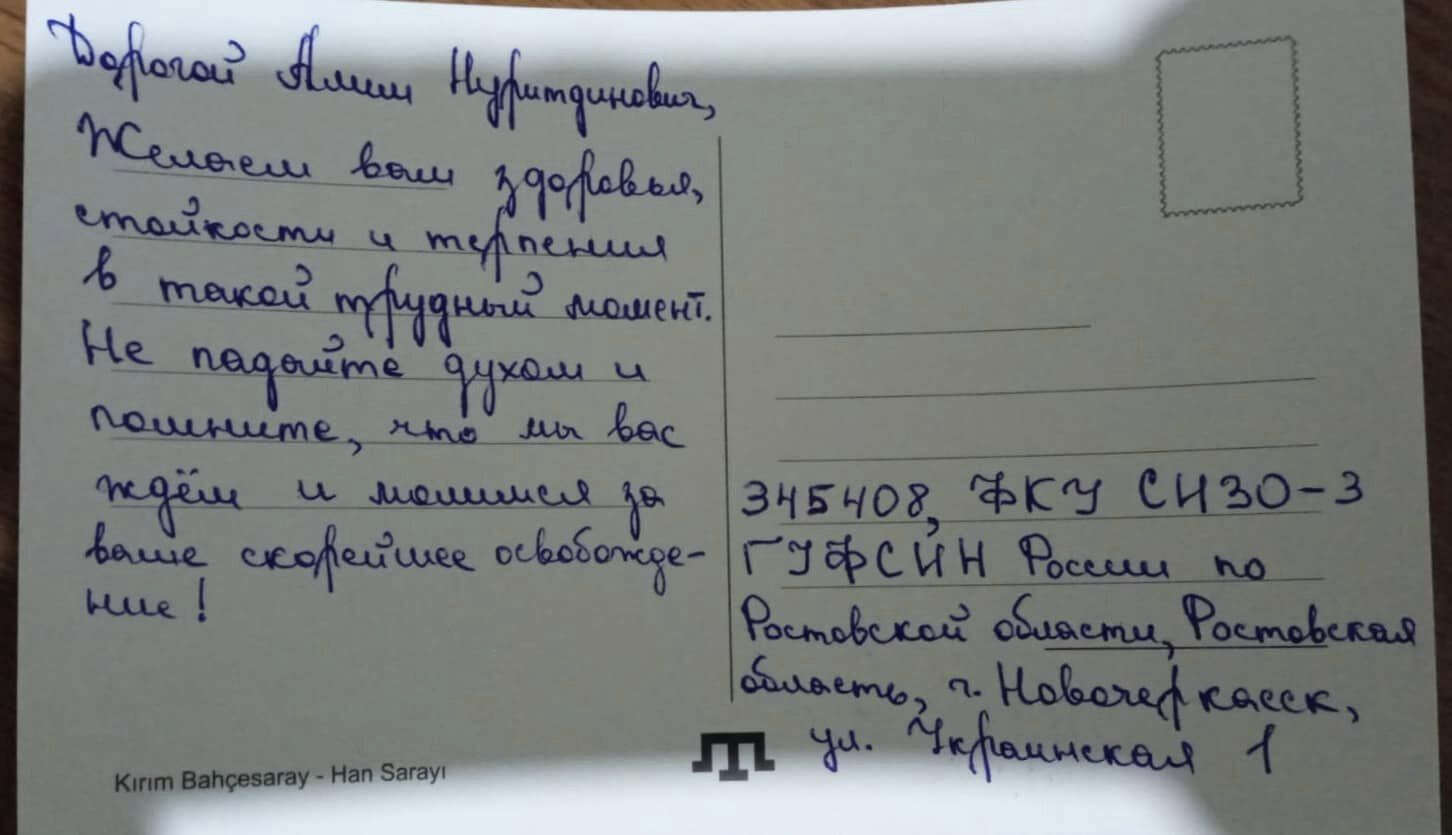 Дорогой Алим Нуритдинович,
Желаем вам здоровья,
стойкости и терпения
в такой трудный момент.
Не падайте духом и
помните, что мы вас
ждём и молимся за
ваше скорейшее освобожде-
ние!
345408, ФКУ СИЗО-3
ГУФСИН России по
Ростовской области, Ростовская
область, г. Новочеркасск,
ул. Украинская 1
Kırım Bahçesaray - Han Sarayı